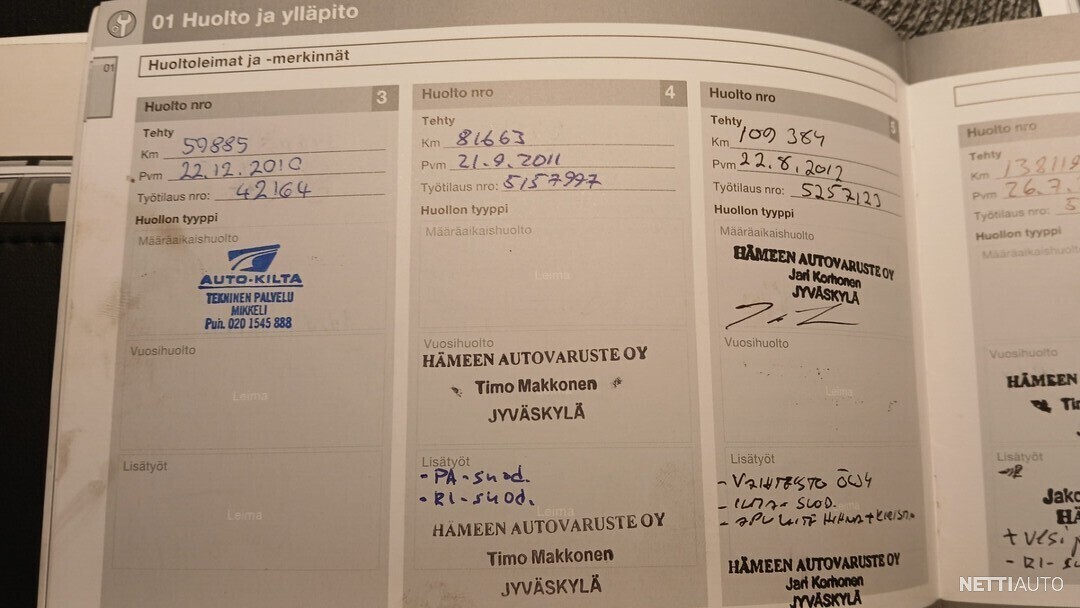 01 Huolto ja ylläpito
01
Huoltoleimat ja -merkinnät
Huolto nro 3
Tehty
Km 59885
Pvm 22.12.2010
Työtilaus nro: 42164
Huollon tyyppi
Määräaikaishuolto
AUTO-KILTA
TEKNINEN PALVELU
MIKKELI
Puh. 020 1545 888
Vuosihuolto
Leima
Lisätyöt
Leima
Huolto nro 4
Tehty
Km 81663
Pvm 21.9.2011
Työtilaus nro: 5157997
Huollon tyyppi
Määräaikaishuolto
Leima
Vuosihuolto
HÄMEEN AUTOVARUSTE OY
Timo Makkonen
JYVÄSKYLÄ
Lisätyöt
- PA-suod.
- RI-suod.
HÄMEEN AUTOVARUSTE OY
Timo Makkonen
JYVÄSKYLÄ
Huolto nro 5
Tehty
Km 109 384
Pvm 22.8.2012
Työtilaus nro: 5257123
Huollon tyyppi
Määräaikaishuolto
HÄMEEN AUTOVARUSTE OY
Jari Korhonen
JYVÄSKYLÄ
Vuosihuolto
Leima
Lisätyöt
- ILMA-SUOD.
HÄMEEN AUTOVARUSTE OY
Jari Korhonen
JYVÄSKYLÄ
Huolto nro
Tehty
Km
Pvm 26.7.
Työtilaus nro: 5
Huollon tyyppi
Määräaikaishuolto
Vuosihuolto
HÄMEEN
Lisätyöt
+ vesi
NETTIAUTO